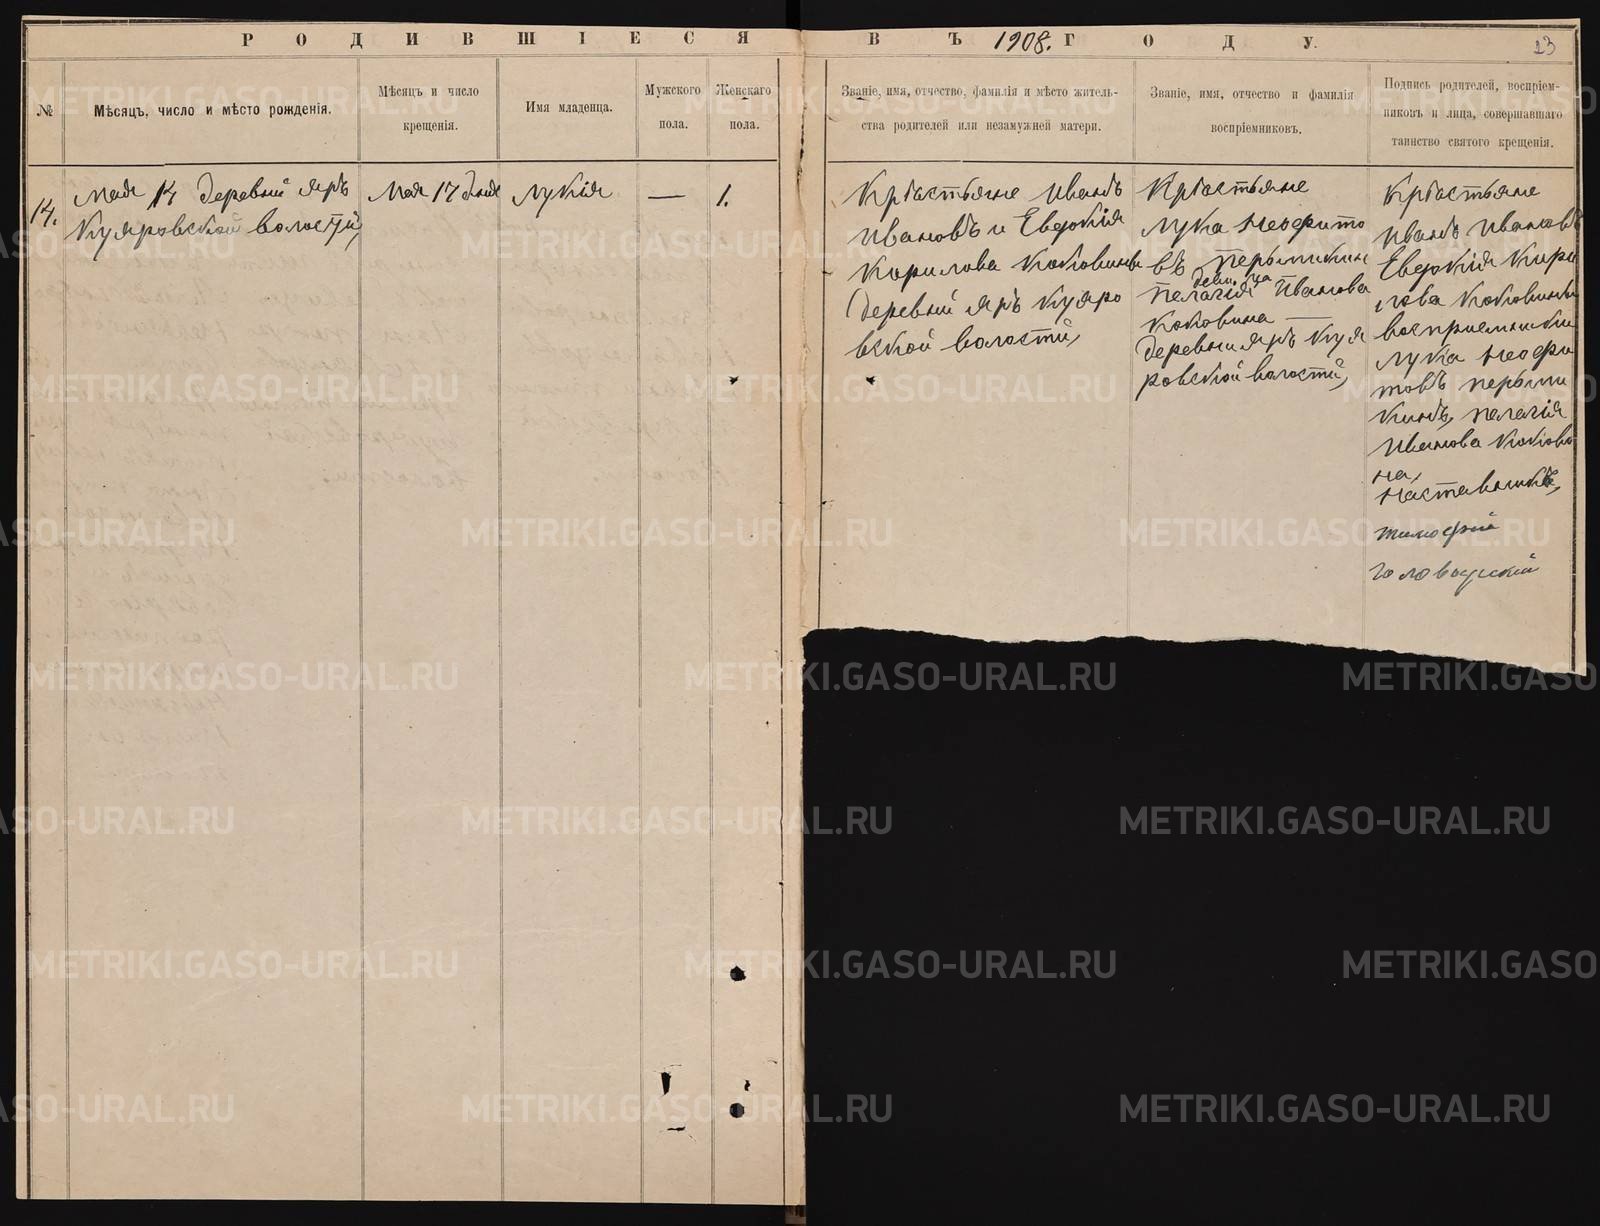 РОДИВШІЕСЯ ВЪ 1908. ГОДУ.
23
№
Мѣсяцъ, число и мѣсто рожденія.
Мѣсяцъ и число
крещенія.
Имя младенца.
Мужского
пола.
Женскаго
пола.
Званіе, имя, отчество, фамилія и мѣсто житель-
ства родителей или незамужней матери.
Званіе, имя, отчество и фамилія
воспріемниковъ.
Подпись родителей, воспріем-
никовъ и лица, совершавшаго
таинство святого крещенія.
14.
мая 14 деревни яръ
Куяровской волости,
Мая 17 дня
Лукія
—
1.
Крѣстьяне Иванъ
Ивановъ и Евдокія
Кирилова Коковины
деревни яръ Куяро
вской волости,
Крѣстьяне
Лука Неофито
въ Перьмикин
девица
Пелагія Иванова
Коковина —
деревни яръ Куя
ровской волости,
Крѣстьяне
Иванъ Ивановъ
Евдокія Кири
лова Коковины
восприемники
Лука Неофи
товъ перьми
кинъ, пелагія
Иванова Кокови
на,
Наставникъ,
тимофей
METRIKI.GASO-URAL.RU